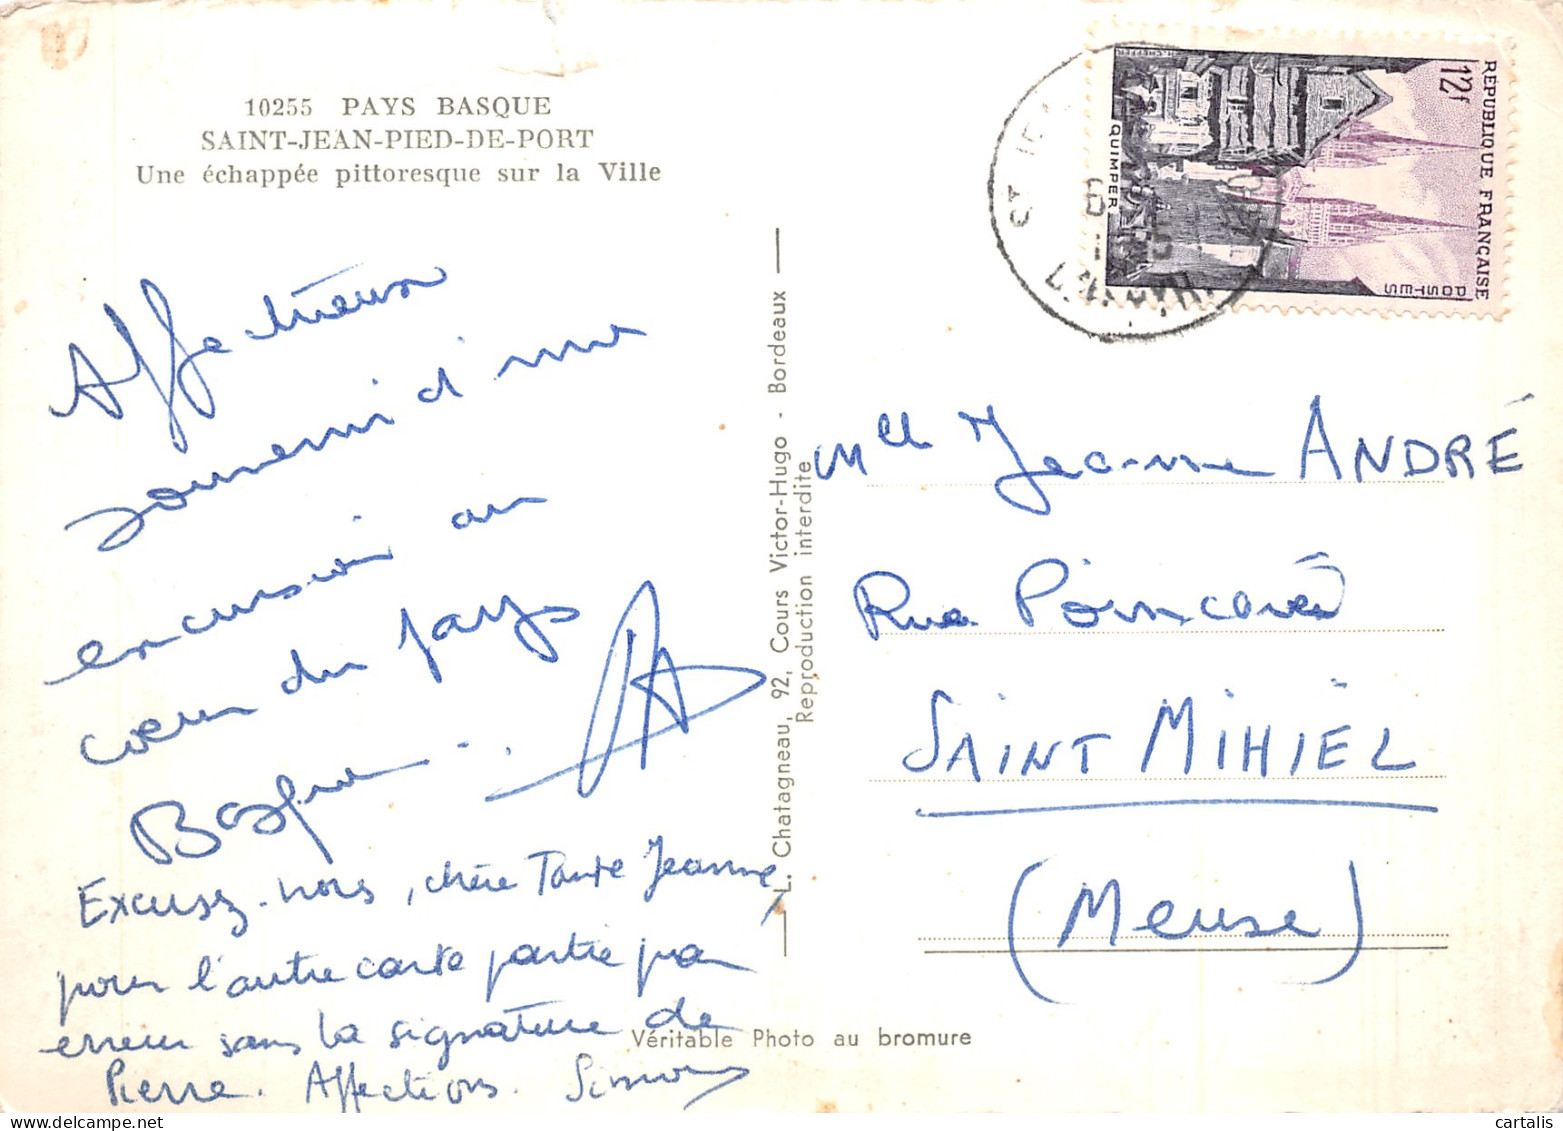 10255 PAYS BASQUE
SAINT-JEAN-PIED-DE-PORT
Une échappée pittoresque sur la Ville
Affectueux
souvenir d'une
excursion au
cœur du pays
Basque...
Excusez-nous, chère Tante Jeanne,
pour l'autre carte partie par
erreur sans la signature de
Pierre. Affections. Simone
L. Chatagneau, 92, Cours Victor-Hugo - Bordeaux
Reproduction interdite
Véritable Photo au bromure
RÉPUBLIQUE FRANÇAISE
12f
POSTES
QUIMPER
H. CHEFFER
ST JEAN
Mlle Jeanne ANDRÉ
Rue Poincaré
SAINT MIHIEL
(Meuse)
cartalis